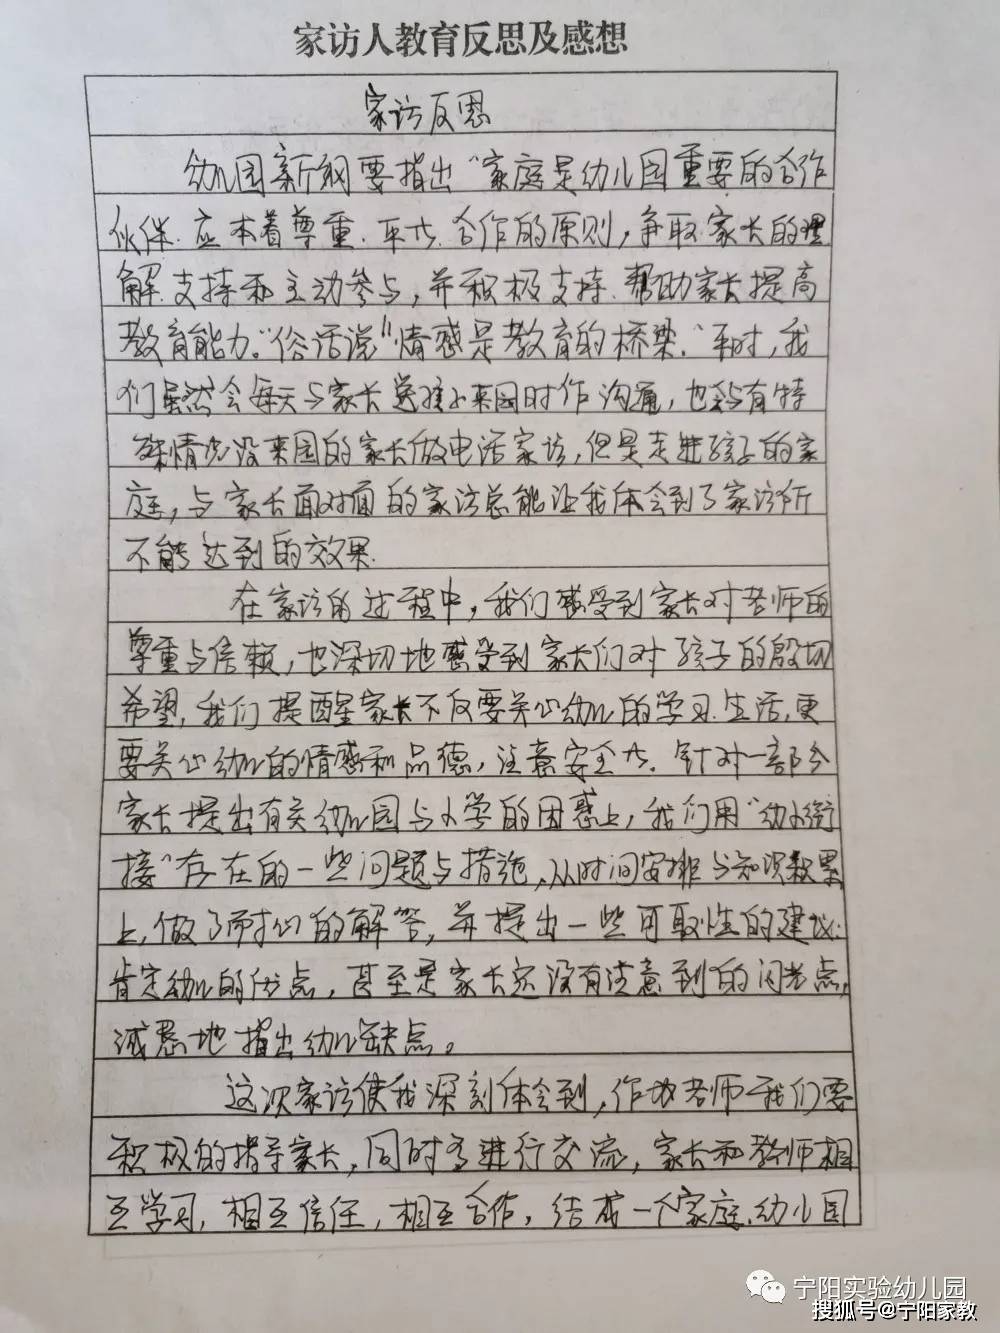 家访人教育反思及感想
家访反思
幼儿园新纲要指出“家庭是幼儿园重要的合作
伙伴.应本着尊重.平等.合作的原则,争取家长的理
解.支持和主动参与,并积极支持.帮助家长提高
教育能力。”俗话说“情感是教育的桥梁.”平时,我
们虽然会每天与家长送接来园时作沟通,也会与有特
殊情况没来园的家长做电话家访,但是走进孩子的家
庭,与家长面对面的家访总能让我体会到了家访所
不能达到的效果.
在家访的过程中,我们感受到家长对老师的
尊重与信赖,也深切地感受到家长们对孩子的殷切
希望,我们提醒家长不仅要关心幼儿的学习.生活,更
要关心幼儿的情感和品德,注意安全等.针对一部分
家长提出有关幼儿园与小学的困惑上,我们用“幼小衔
接”存在的一些问题与措施,从时间安排与知识积累
上,做了的解答,并提出一些可取性的建议;
肯定幼儿的优点,甚至是家长还没有注意到的闪光点,
诚恳地指出幼儿缺点。
这次家访使我深刻体会到,作为老师我们要
积极的指导家长,同时多进行交流,家长和教师相
互学习,相互信任,相互合作,结成一个家庭.幼儿园
宁阳实验幼儿园
搜狐号@宁阳家教